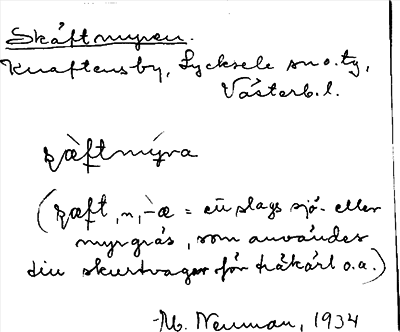 Skäftmyren.
Knaftens by, Lycksele sn o. tg,
Västerb. l.
ʂæ̀ftmýra
(ʂæft, n, -æ = en slags sjö- eller
myrgräs, som användes
till skurtvagor för träkärl o.a.)
M. Neuman, 1934